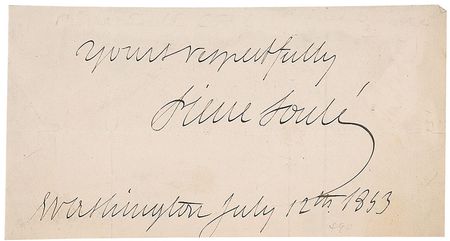 Yours respectfully
Pierre Soulé
Washington July 12th. 1853